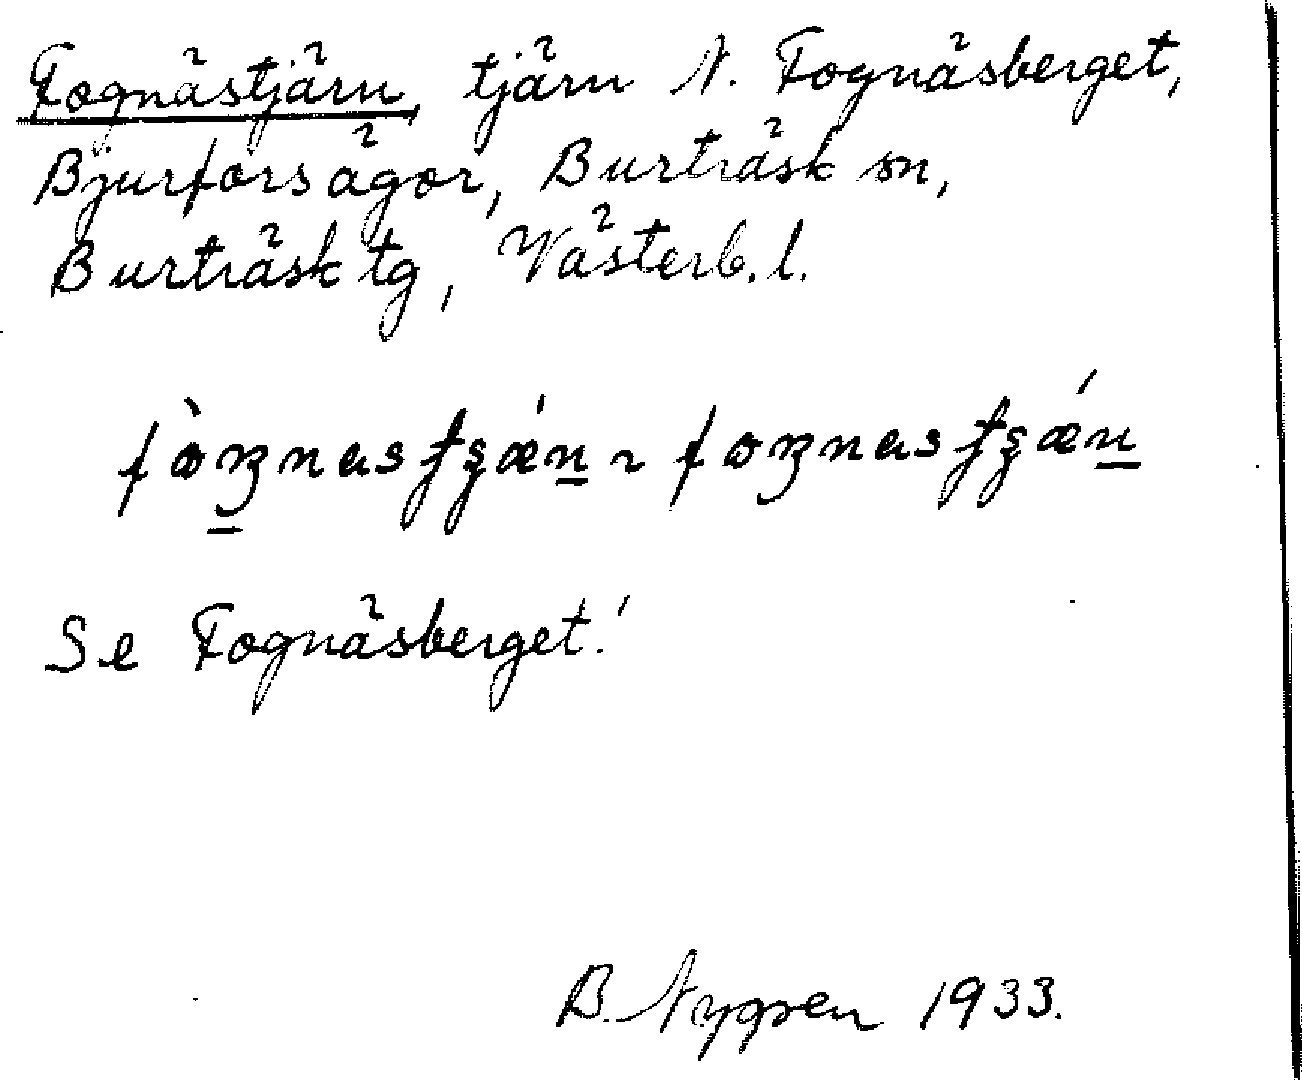 Fognästjärn, tjärn N. Fognäsberget,
Bjurfors ägor, Burträsk sn,
Burträsk tg, Västerb. l.
Se Fognäsberget!
B. Nygren 1933.